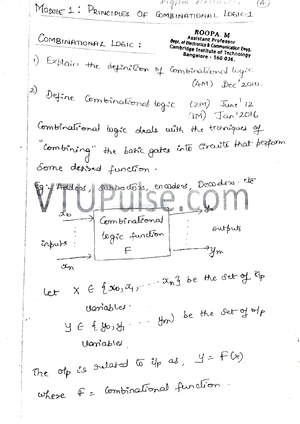 Digital Electronics
MODULE 1 : PRINCIPLES OF COMBINATIONAL LOGIC-1
ROOPA. M
Assistant Professor
Dept. of Electronics & Communication Engg.
Cambridge Institute of Technology
Bangalore - 560 036.
COMBINATIONAL LOGIC :
1) Explain the definition of Combinational logic
(4M) Dec' 2010.
2) Define Combinational logic (2M) June' 12
(1M) Jan' 2016
Combinational logic deals with the techniques of
"combining" the basic gates into circuits that perform
some desired function.
Eg:- Adders, subtractors, encoders, Decoders. etc
VTUPulse.com
x0 Combinational y0
inputs logic function outputs
xn F ym
Let X ∈ {x0, x1, ---- xn} be the set of i/p
variables.
Y ∈ {y0, y1 ---- ym} be the set of o/p
variables.
The o/p is related to i/p as, y = F(x)
where F = combinational function.